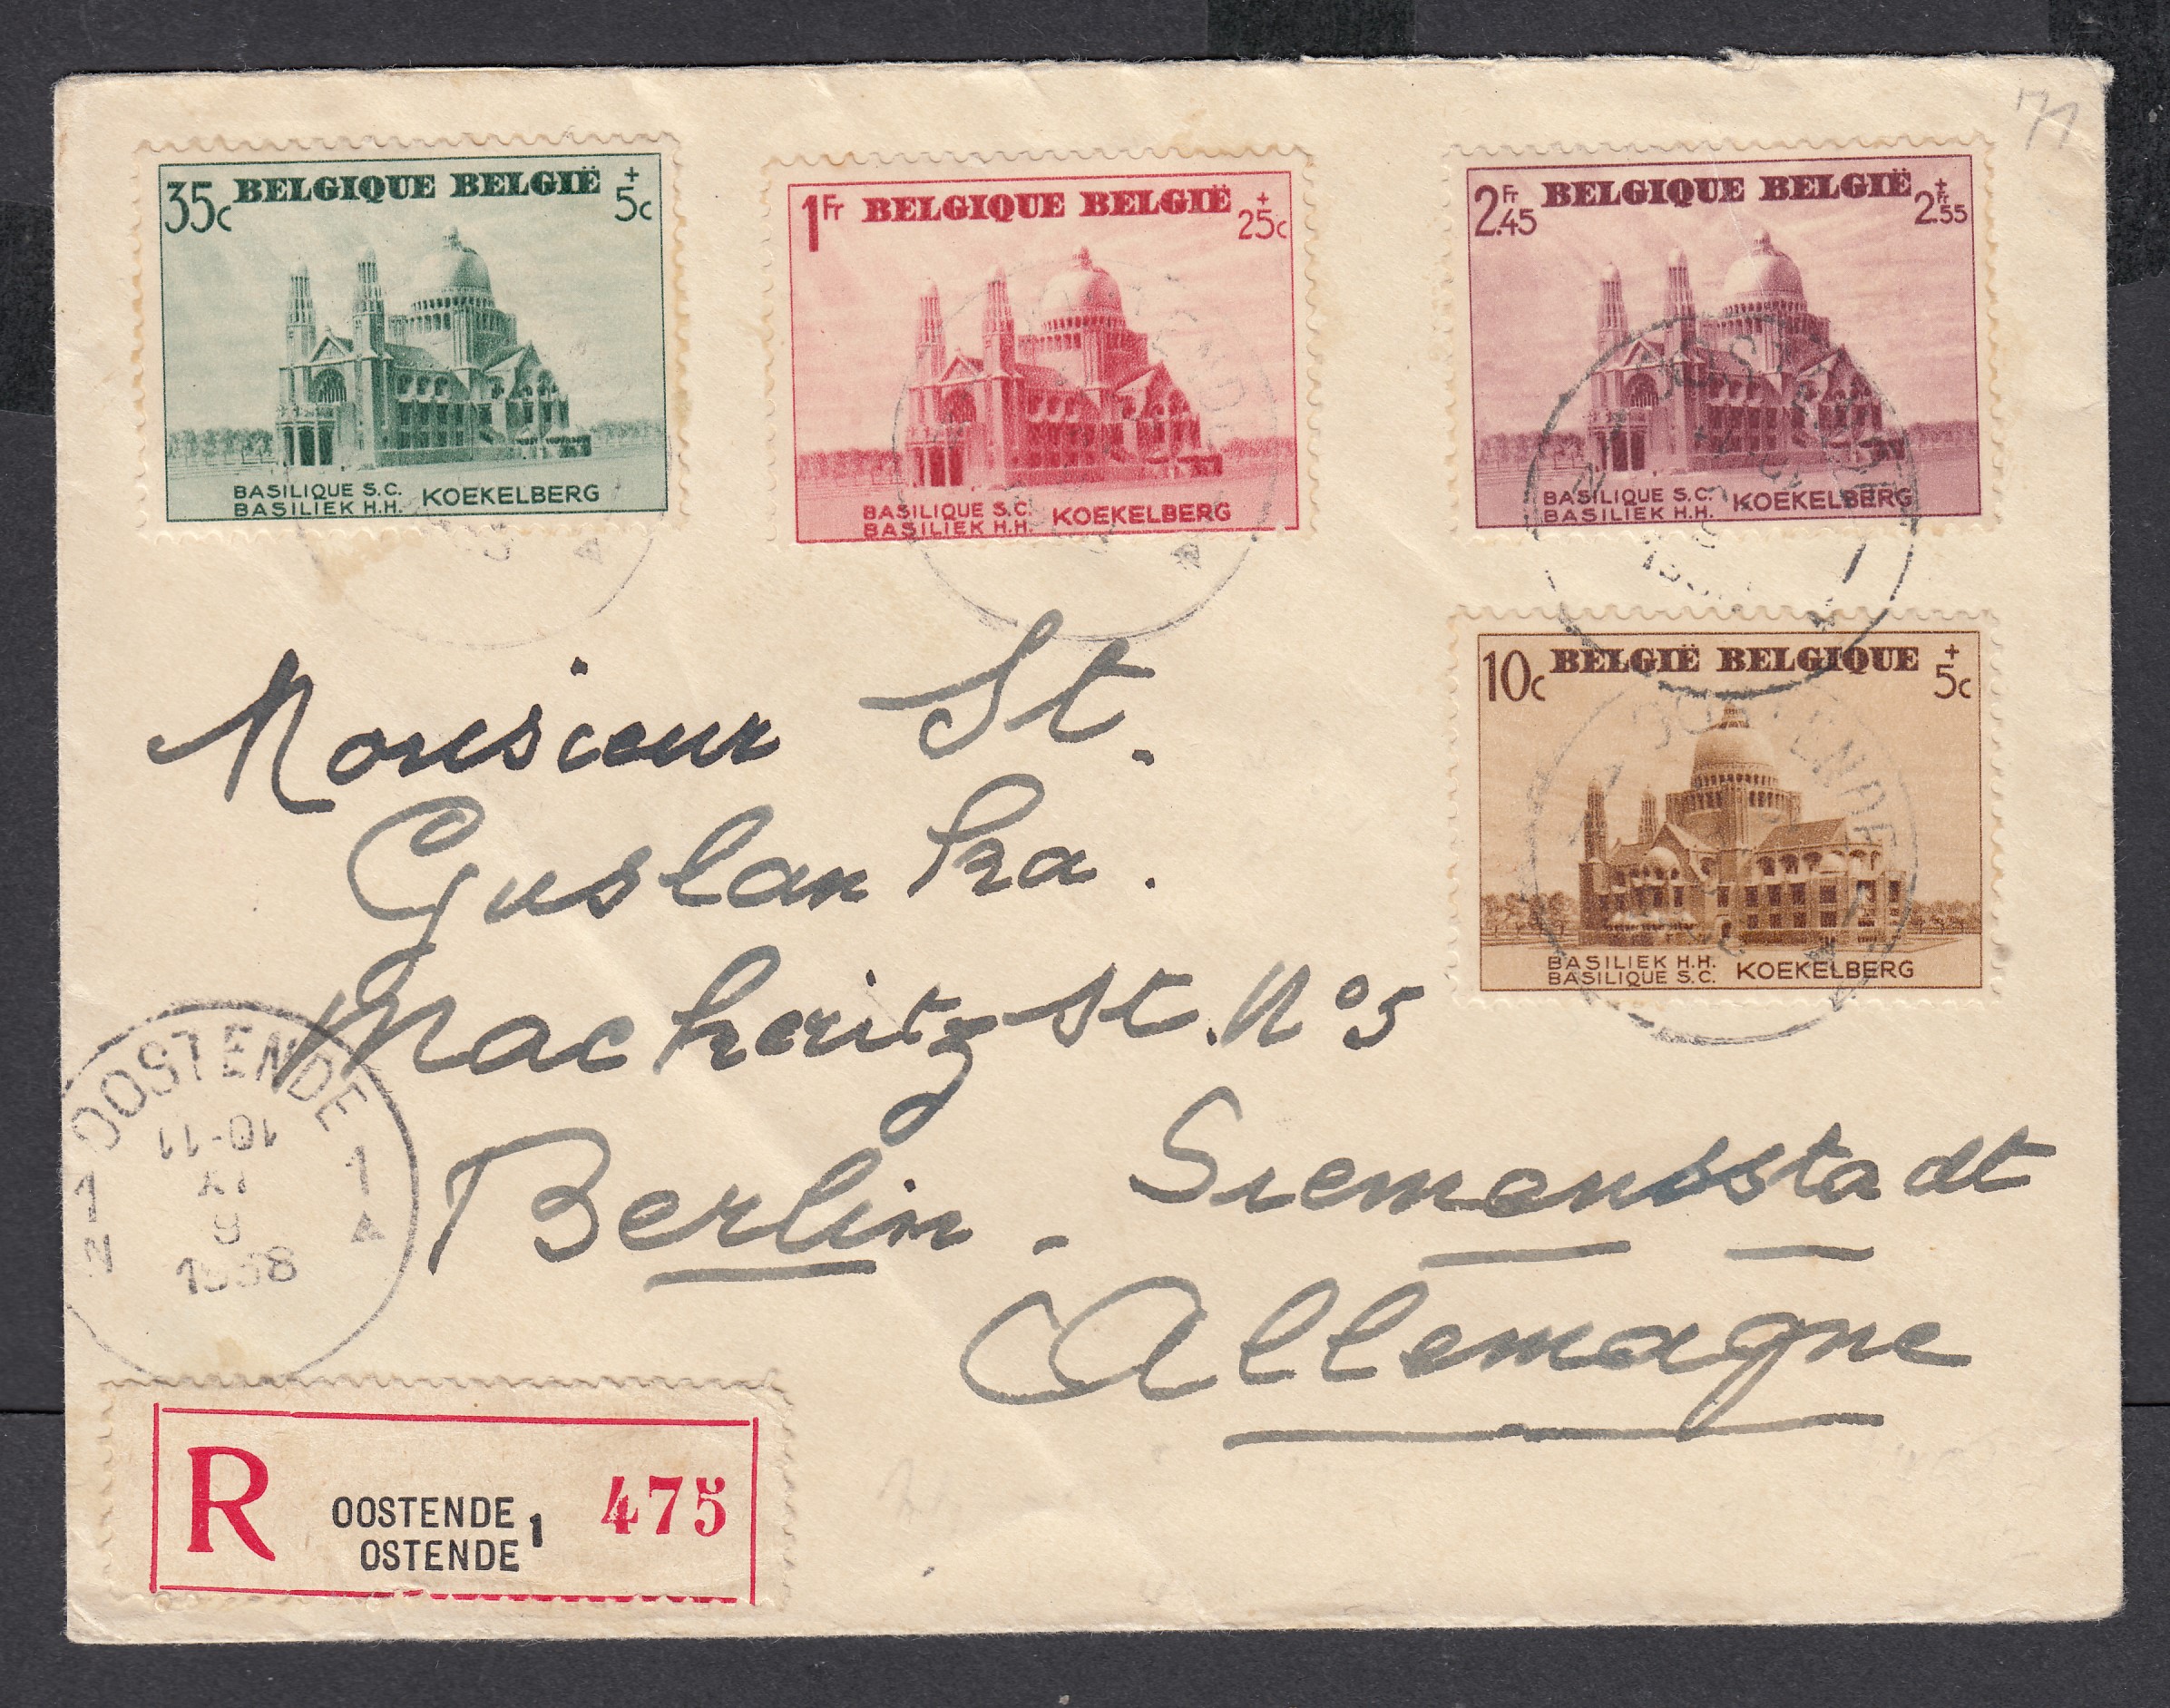 35c BELGIQUE BELGIË + 5c
BASILIQUE S.C. KOEKELBERG
BASILIEK H.H.
1Fr BELGIQUE BELGIË + 25c
BASILIQUE S.C. KOEKELBERG
BASILIEK H.H.
2Fr.45 BELGIQUE BELGIË + 2Fr.55
BASILIQUE S.C. KOEKELBERG
BASILIEK H.H.
OOSTENDE
10c BELGIË BELGIQUE + 5c
BASILIEK H.H. KOEKELBERG
BASILIQUE S.C.
OOSTENDE
Monsieur St.
Guslanka.
Mackeritz St. N° 5
Berlin. Siemensstadt
Allemagne
OOSTENDE
10-11
XI
9
1938
1 1
N A
R OOSTENDE 1 475
OSTENDE